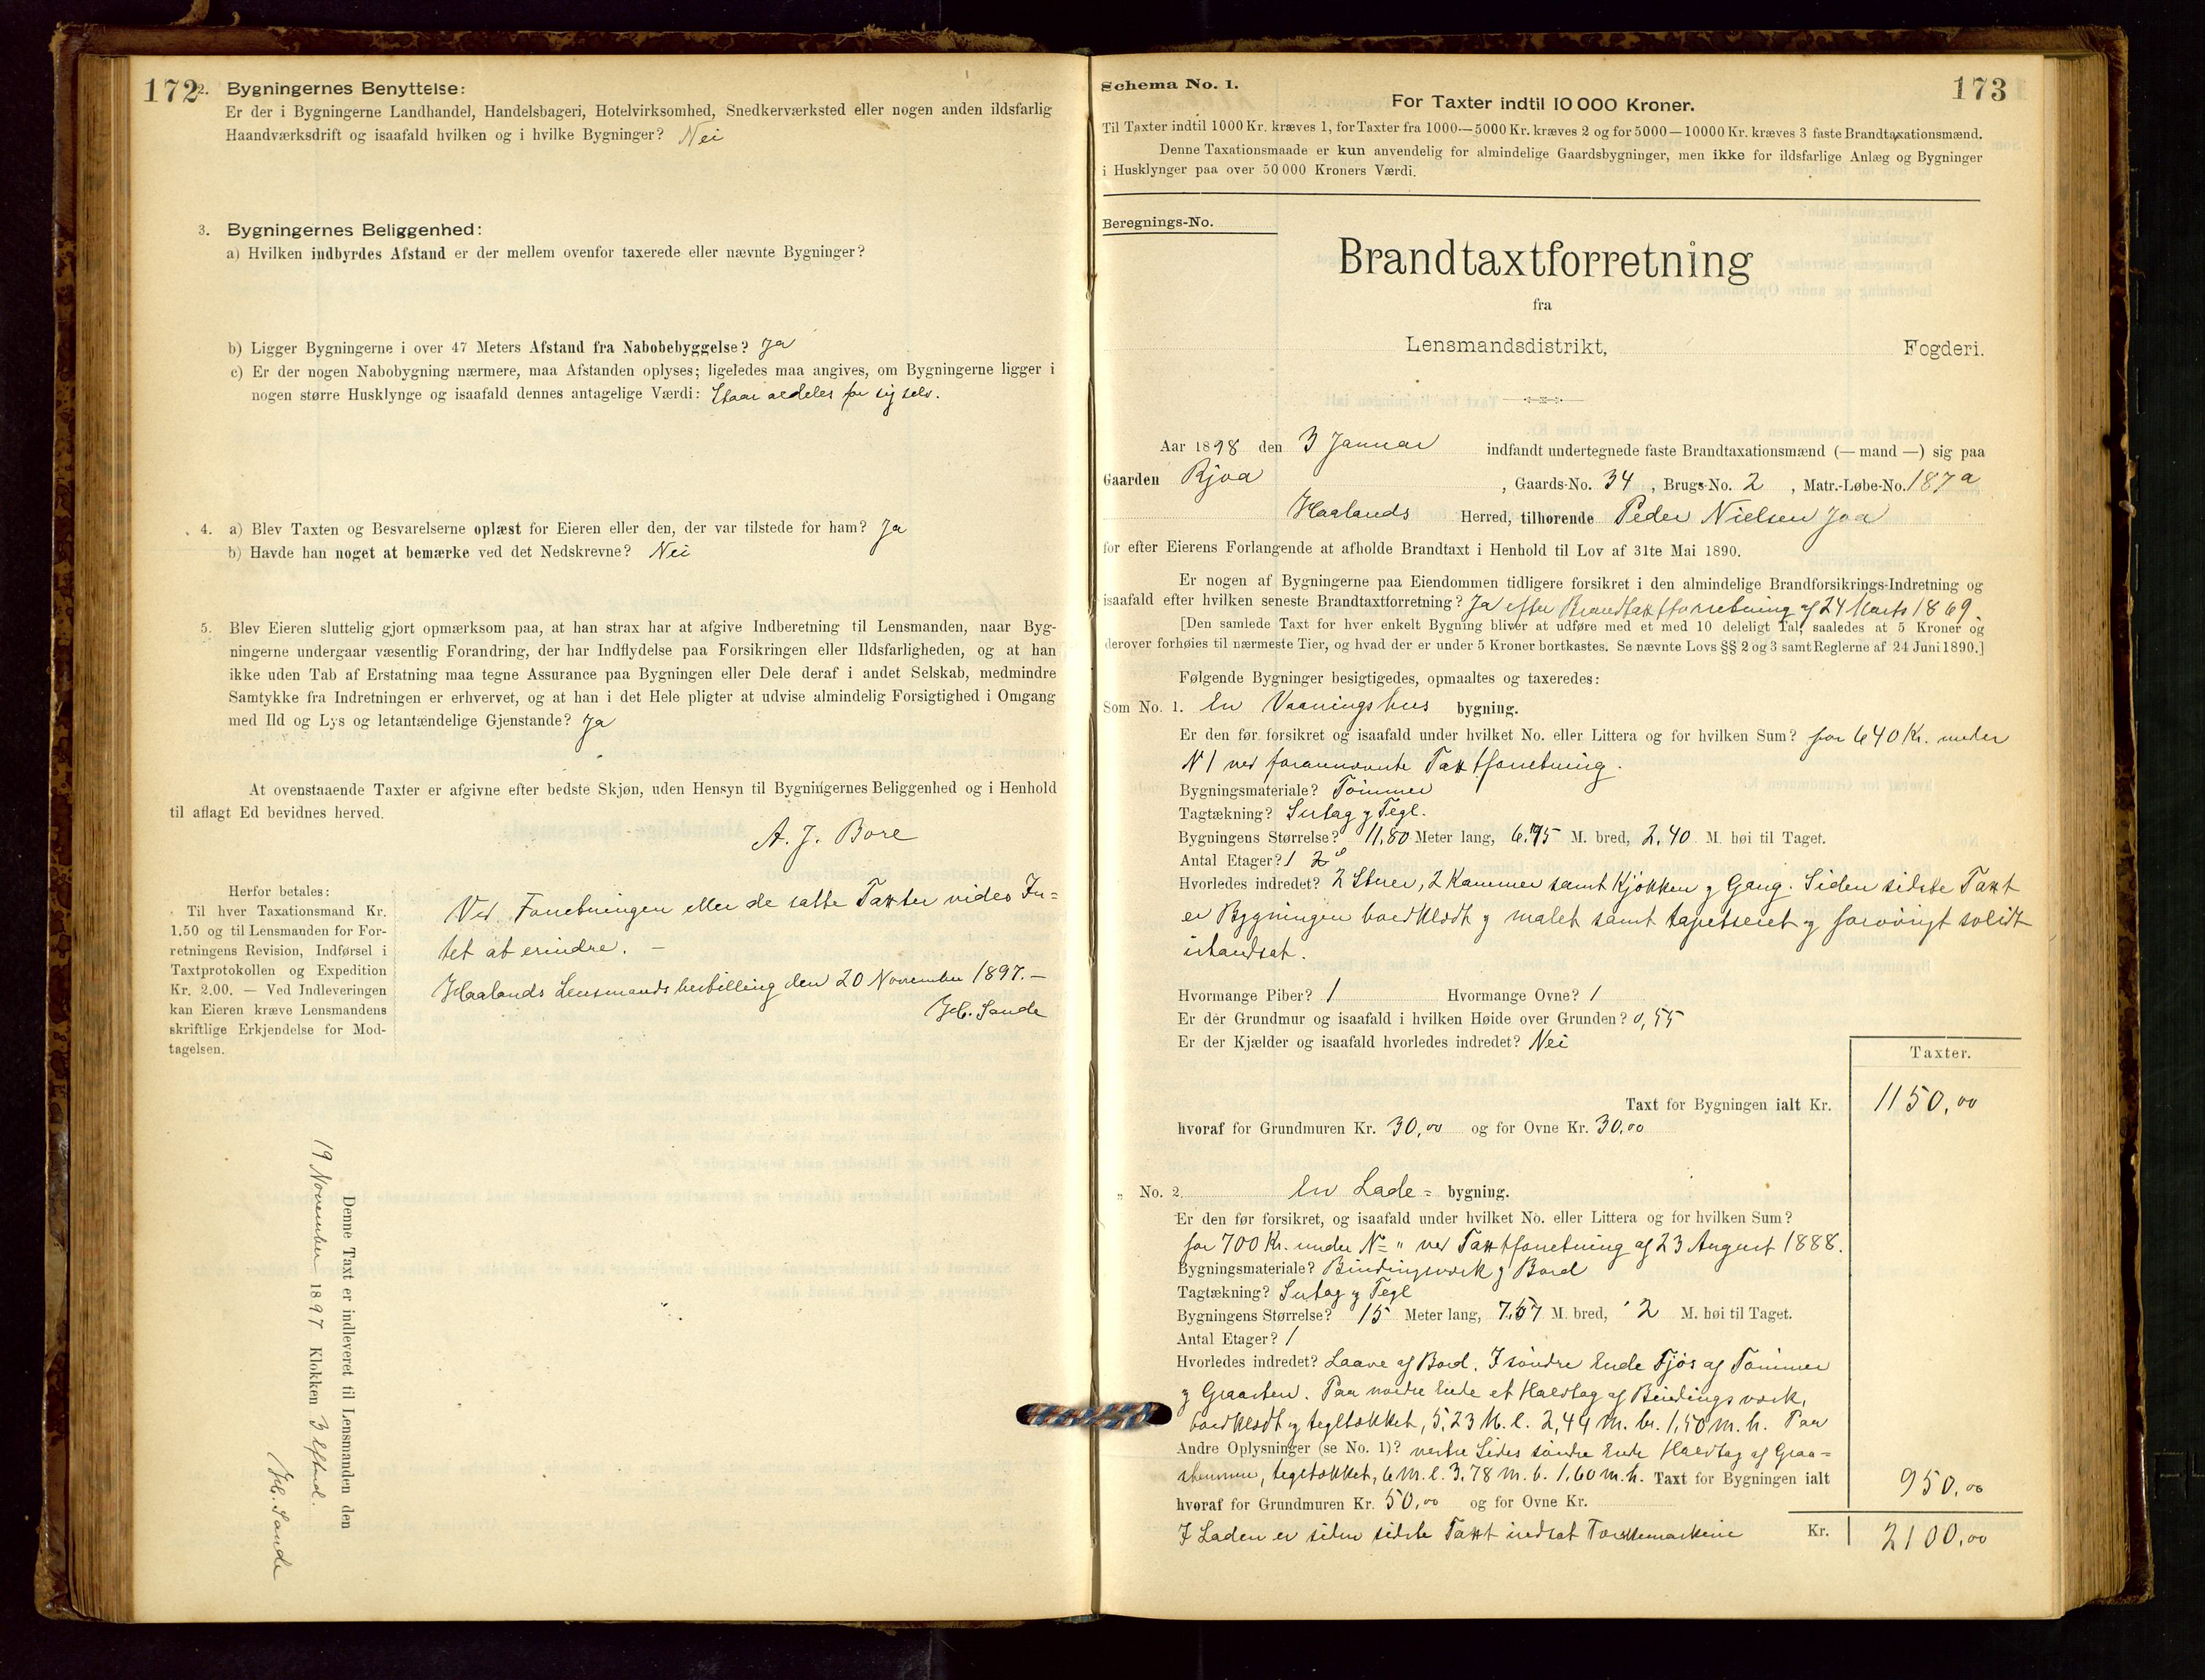 172
2. Bygningernes Benyttelse:
Er der i Bygningerne Landhandel, Handelsbageri, Hotelvirksomhed, Snedkerværksted eller nogen anden ildsfarlig
Haandværksdrift og isaafald hvilken og i hvilke Bygninger? Nei
3. Bygningernes Beliggenhed:
a) Hvilken indbyrdes Afstand er der mellem ovenfor taxerede eller nævnte Bygninger?
b) Ligger Bygningerne i over 47 Meters Afstand fra Nabobebyggelse? Ja
c) Er der nogen Nabobygning nærmere, maa Afstanden oplyses; ligeledes maa angives, om Bygningerne ligger i
nogen større Husklynge og isaafald dennes antagelige Værdi: Staar aldeles for sig selv.
4. a) Blev Taxten og Besvarelserne oplæst for Eieren eller den, der var tilstede for ham? Ja
b) Havde han noget at bemærke ved det Nedskrevne? Nei
5. Blev Eieren sluttelig gjort opmærksom paa, at han strax har at afgive Indberetning til Lensmanden, naar Byg-
ningerne undergaar væsentlig Forandring, der har Indflydelse paa Forsikringen eller Ildsfarligheden, og at han
ikke uden Tab af Erstatning maa tegne Assurance paa Bygningen eller Dele deraf i andet Selskab, medmindre
Samtykke fra Indretningen er erhvervet, og at han i det Hele pligter at udvise almindelig Forsigtighed i Omgang
med Ild og Lys og letantændelige Gjenstande? Ja
At ovenstaaende Taxter er afgivne efter bedste Skjøn, uden Hensyn til Bygningernes Beliggenhed og i Henhold
til aflagt Ed bevidnes herved.
A. J. Bore
Herfor betales:
Til hver Taxationsmand Kr.
1.50 og til Lensmanden for For-
retningens Revision, Indførsel i
Taxtprotokollen og Expedition
Kr. 2.00. — Ved Indleveringen
kan Eieren kræve Lensmandens
skriftlige Erkjendelse for Mod-
tagelsen.
Ved Forretningen eller de satte Taxter vides In-
tet at erindre. —
Haalands Lensmandsbestilling den 20 November 1897. —
Sande
Denne Taxt er indleveret til Lensmanden den
19 November 1897 Klokken 3 Eftmd.
Sande
Schema No. 1.
173
For Taxter indtil 10 000 Kroner.
Til Taxter indtil 1000 Kr. kræves 1, for Taxter fra 1000—5000 Kr. kræves 2 og for 5000—10000 Kr. kræves 3 faste Brandtaxationsmænd.
Denne Taxationsmaade er kun anvendelig for almindelige Gaardsbygninger, men ikke for ildsfarlige Anlæg og Bygninger
i Husklynger paa over 50 000 Kroners Værdi.
Beregnings-No.
Brandtaxtforretning
fra
Lensmandsdistrikt, Fogderi.
Aar 1898 den 3 Januar indfandt undertegnede faste Brandtaxationsmænd (— mand —) sig paa
Gaarden Rjoa, Gaards-No. 34, Brugs-No. 2, Matr.-Løbe-No. 187a
Haalands Herred, tilhørende Peder Nielsen Joa
for efter Eierens Forlangende at afholde Brandtaxt i Henhold til Lov af 31te Mai 1890.
Er nogen af Bygningerne paa Eiendommen tidligere forsikret i den almindelige Brandforsikrings-Indretning og
isaafald efter hvilken seneste Brandtaxtforretning? Ja efter Brandtaxtforretning af 24 Marts 1869.
[Den samlede Taxt for hver enkelt Bygning bliver at udføre med et med 10 deleligt Tal, saaledes at 5 Kroner og
derover forhøies til nærmeste Tier, og hvad der er under 5 Kroner bortkastes. Se nævnte Lovs §§ 2 og 3 samt Reglerne af 24 Juni 1890.]
Følgende Bygninger besigtigedes, opmaaltes og taxeredes:
Som No. 1. En Vaaningshus bygning.
Er den før forsikret og isaafald under hvilket No. eller Littera og for hvilken Sum? for 640 Kr. under
N 1 ved forannævnte Taxtforretning.
Bygningsmateriale? Tømmer
Tagtækning? Sutag og Tegl.
Bygningens Størrelse? 11.80 Meter lang, 6.95 M. bred, 2.40 M. høi til Taget.
Antal Etager? 1
Hvorledes indredet? 2 Stuer, 2 Kammer samt Kjøkken og Gang. Siden sidste Taxt
er Bygningen bordklædt og malet samt tapetseret og forøvrigt solidt
istandsat.
Hvormange Piber? 1 Hvormange Ovne? 1
Er der Grundmur og isaafald i hvilken Høide over Grunden? 0,55
Er der Kjælder og isaafald hvorledes indredet? Nei
Taxter.
Taxt for Bygningen ialt Kr. 1150,00
hvoraf for Grundmuren Kr. 30,00 og for Ovne Kr. 30,00
„ No. 2. En Lade- bygning.
Er den før forsikret, og isaafald under hvilket No. eller Littera og for hvilken Sum?
for 700 Kr. under No " ved Taxtforretning af 23 August 1888.
Bygningsmateriale? Bindingsværk og Bord
Tagtækning? Sutag og Tegl
Bygningens Størrelse? 15 Meter lang, 7.57 M. bred, 2 M. høi til Taget.
Antal Etager? 1
Hvorledes indredet? Laave af Bord. I søndre Ende Fjøs af Tømmer
og Graasten. Paa nordre Ende et Halvtag af Bindingsværk,
bordklædt og tegltækket, 5,23 M. l. 2,44 m. br. 1,50 m. h. Paa
Andre Oplysninger (se No. 1)? vestre Sides søndre Ende Halvtag af Graa-
stensmur, tegltækket, 6 m. l. 3.78 m. b. 1.60 m. h. Taxt for Bygningen ialt 950,00
hvoraf for Grundmuren Kr. 50,00 og for Ovne Kr.
I Laden er siden sidste Taxt indsat Tærskemaskine Kr. 2100,00